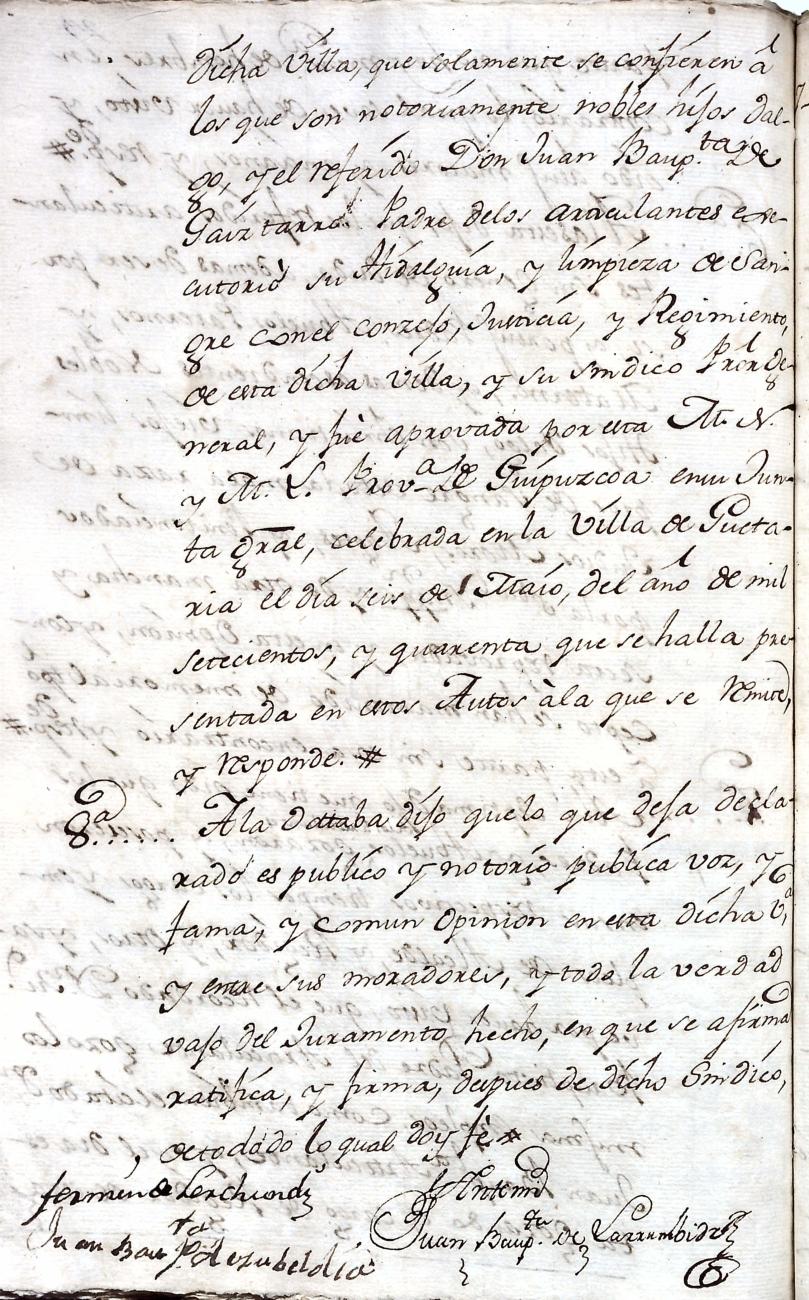 dicha Villa, que solamente se confieren á
los que son notoriamente nobles hijos dal-
go, y el referido Don Juan Baup.ta de
Gaiztarro Padre delos articulantes exe-
cutorió su Hidalguia, y limpieza de San-
gre conel conzejo, Justicia, y Regimiento,
de esta dicha Villa, y su sindico Pror Ge-
neral, y fué aprovada por esta M. N.
y M. L. Prov.a de Guipuzcoa en su Jun-
ta gral, celebrada en la Villa de Gueta-
ria el dia seis de Maio, del año de mil
setecientos, y quarenta que se halla pre-
sentada en estos Autos àla que se remite,
y responde. #
8.a...... Ala Octtaba dijo quelo que deja decla-
rado es publico y notorio publica voz, y
fama, y comun opinion en esta dicha V.a
y entre sus moradores, y todo la verdad
vajo del Juramento hecho, en que se afirma
ratifica, y firma, depues de dicho Sindico,
de todo lo qual doy fè #
fermin de Lerchundi
Antemi
Juan Baup.ta de Larrumbide
Juan Bau.ta Aezubeldia